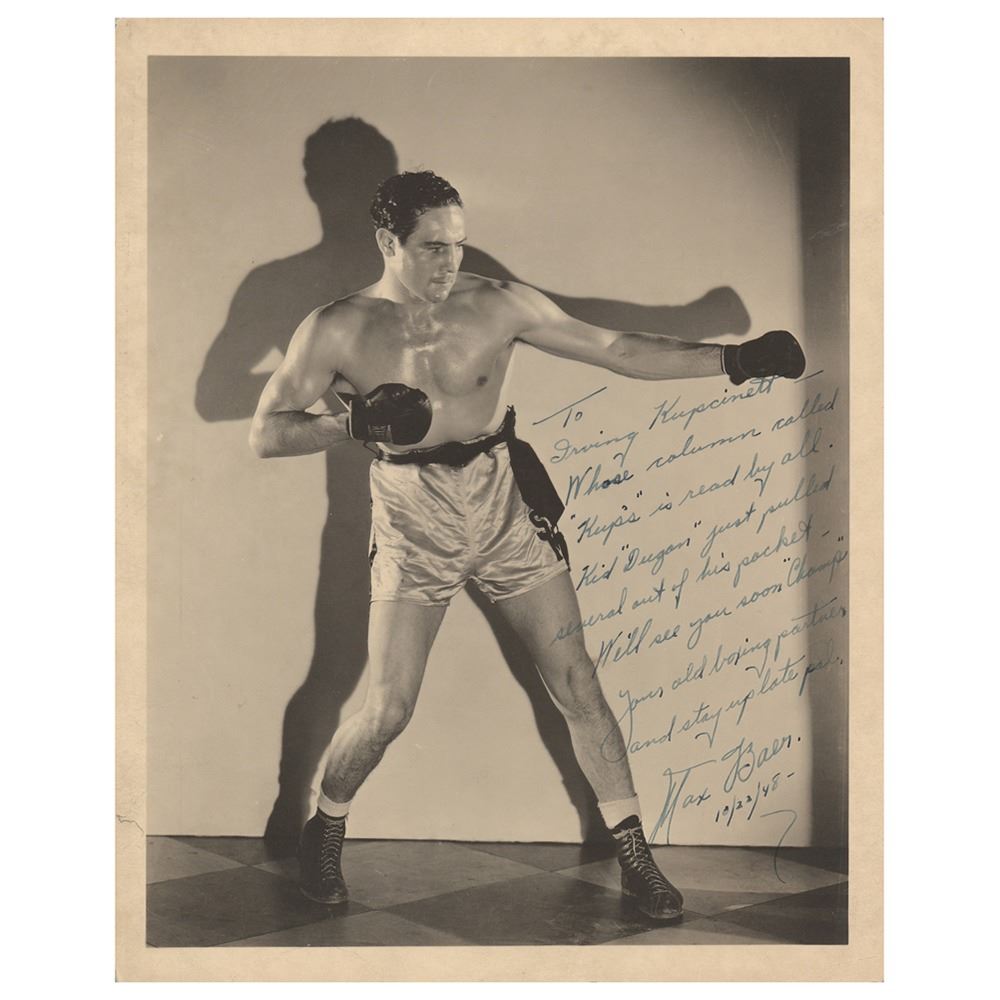 To
Irving Kupcinett —
Whose column called
"Kup's" is read by all.
Kid "Dugan" just pulled
several out of his pocket —
We'll see you soon "Champ"
Your old boxing partner
and stay up late pal.
Max Baer.
10/22/48 -